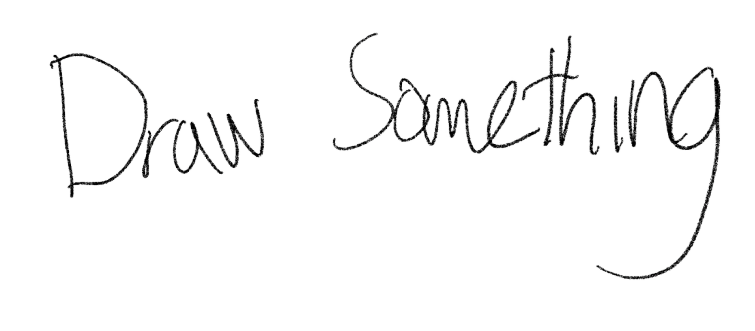 Draw Something